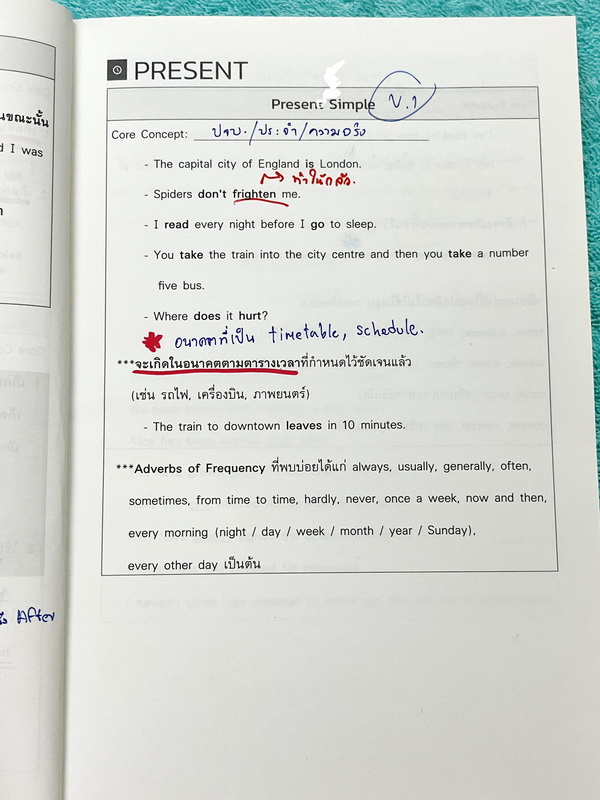 นขณะนั้น
d I was
After
PRESENT
Present Simple V.1
Core Concept: ปจบ./ประจำ/ความจริง
- The capital city of England is London.
ทำให้กลัว.
- Spiders don't frighten me.
- I read every night before I go to sleep.
- You take the train into the city centre and then you take a number
five bus.
- Where does it hurt?
อนาคตที่เป็น timetable, schedule.
***จะเกิดในอนาคตตามตารางเวลาที่กำหนดไว้ชัดเจนแล้ว
(เช่น รถไฟ, เครื่องบิน, ภาพยนตร์)
- The train to downtown leaves in 10 minutes.
***Adverbs of Frequency ที่พบบ่อยได้แก่ always, usually, generally, often,
sometimes, from time to time, hardly, never, once a week, now and then,
every morning (night / day / week / month / year / Sunday),
every other day เป็นต้น